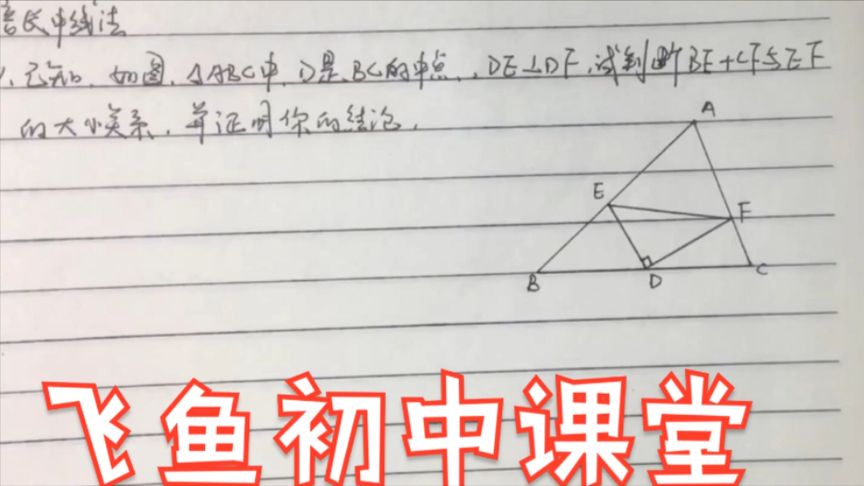 倍长中线法
1.已知,如图,△ABC中,D是BC的中点,DE⊥DF,试判断BE+CF与EF
的大小关系,并证明你的结论.
A
E
F
B
D
C
飞鱼初中课堂